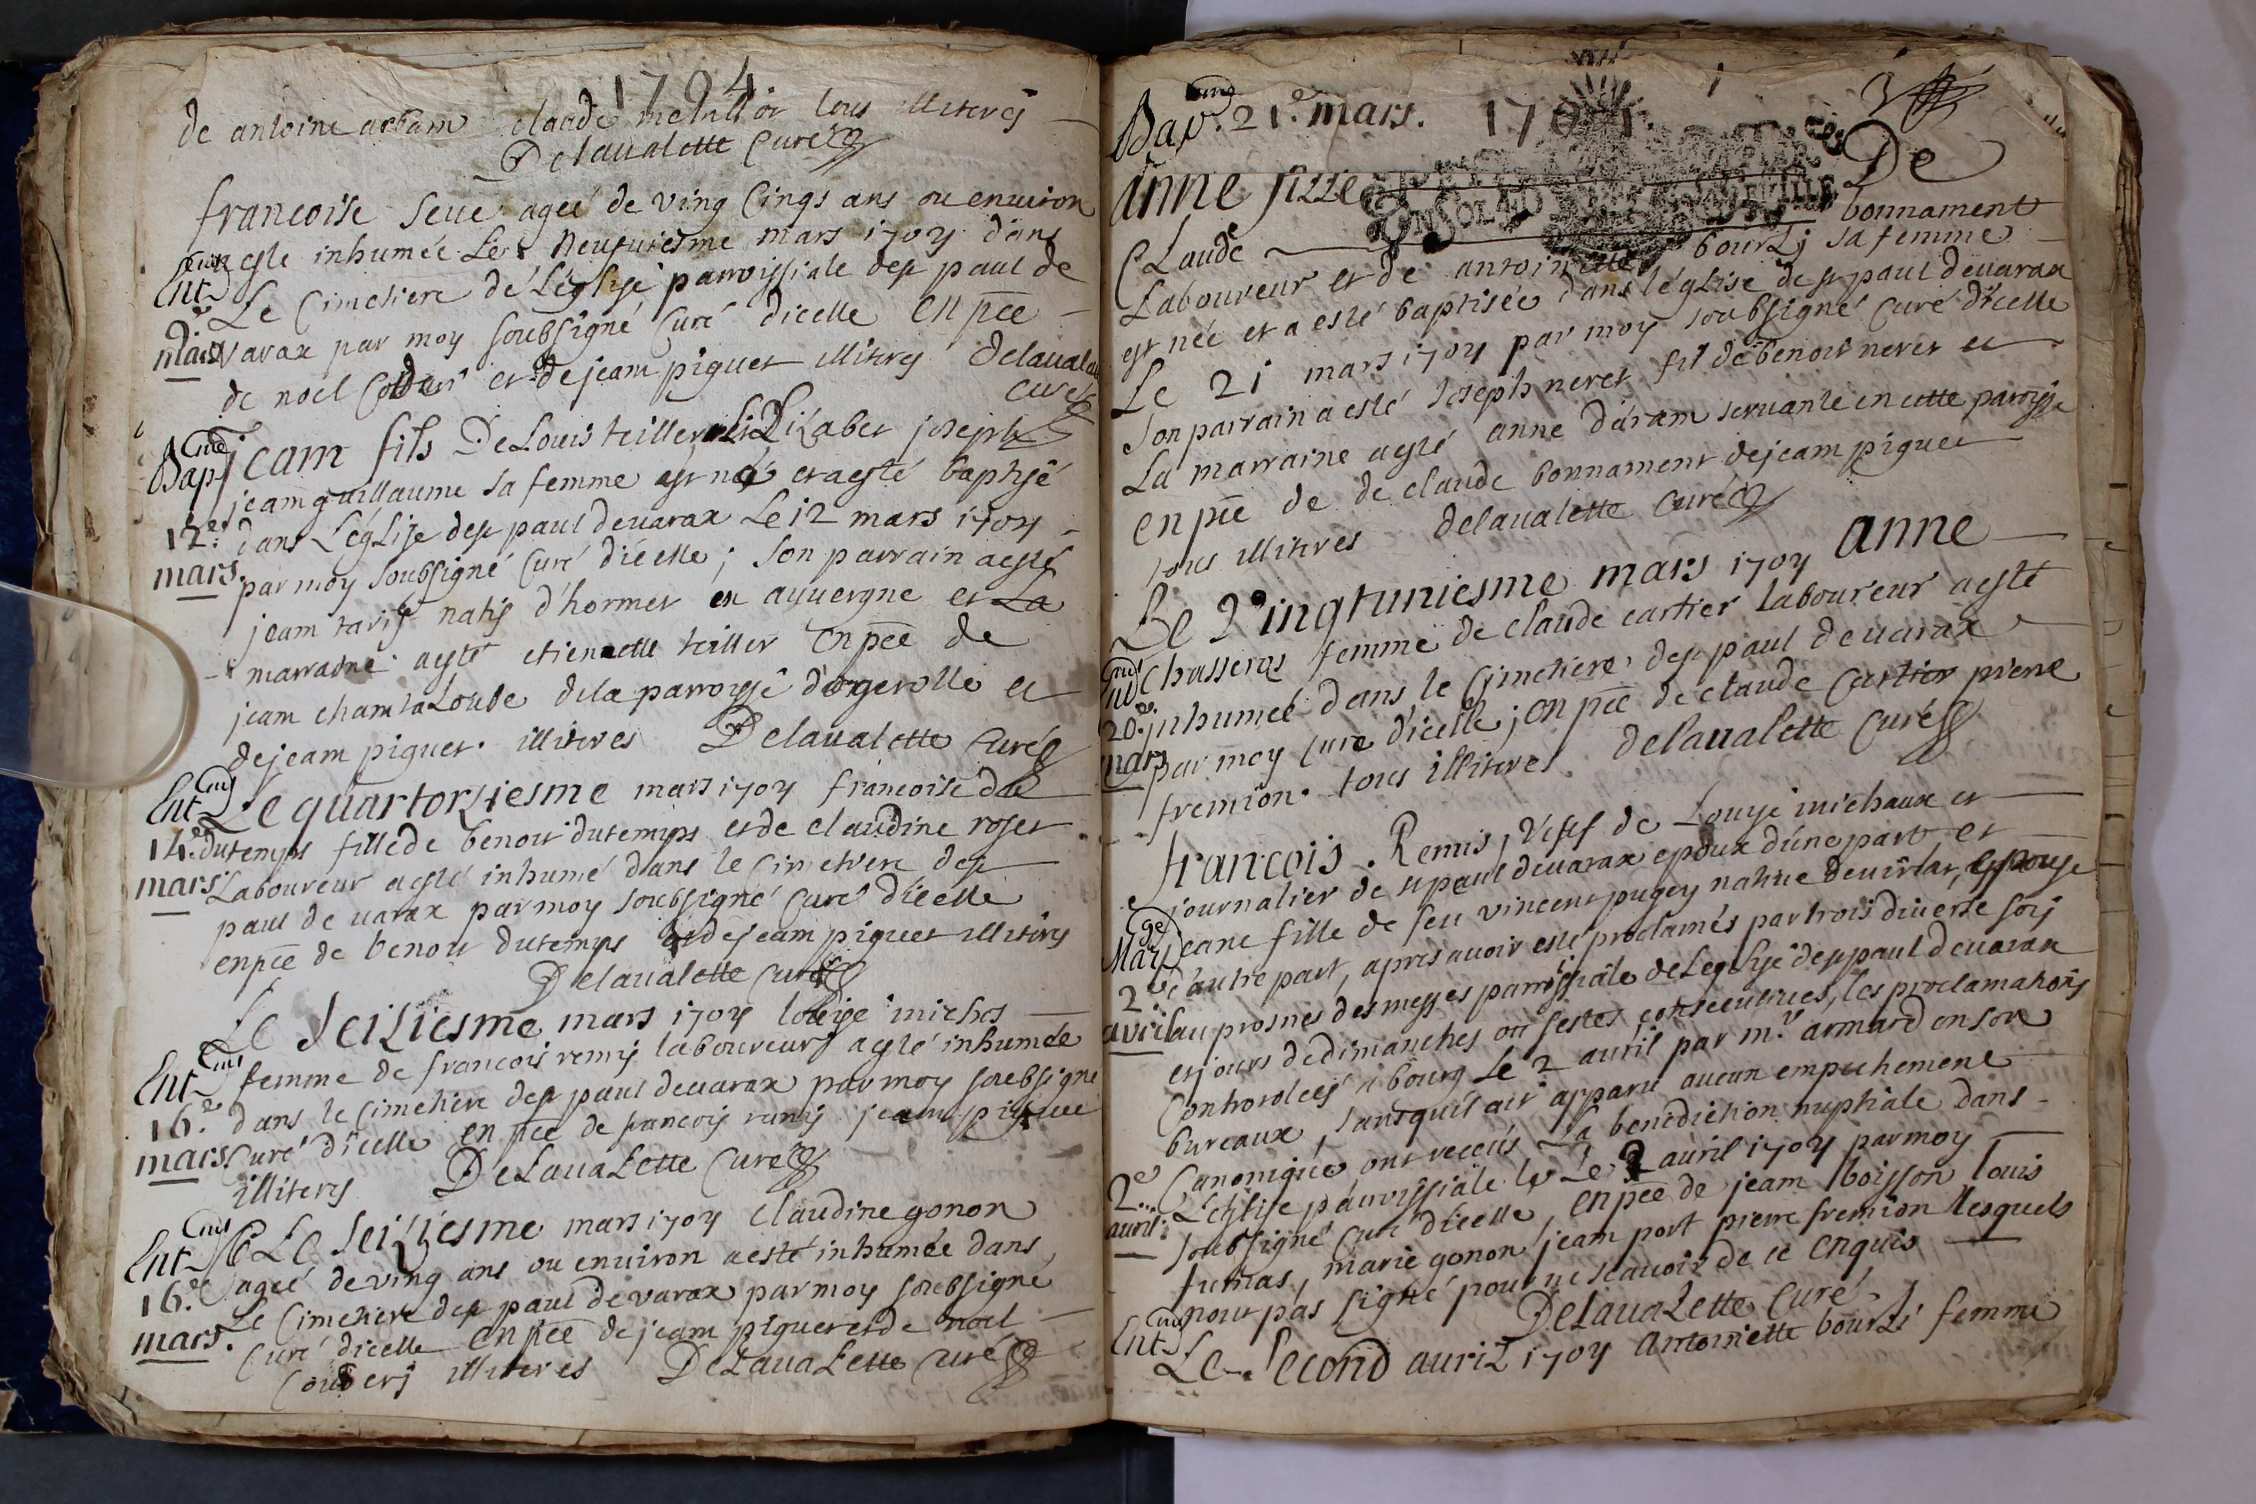 1704
de antoine arbam claude metillior tous illiterés
Delaualette Curé
francoise seue ageé de ving Cings ans ou enuiron
este inhumée Le neufuiesme mars 1704 dans
Ent
Le Cimetiere de L'église parroissiale de st paul de
9e mars
varax par moy soubsigné Curé dicelle en pce
de noel et de jeam piguet illiterés delaualette
Curé
Bap
jeam fils De Louis teiller Elizabet joseph
jeam guillaume sa femme est né et a esté baptisé
12e
dans L'église de st paul deuarax Le 12 mars 1704
mars.
par moy soubsigné Curé d'icelle ; son parrain a esté
jeam natif d'hormet en auuergne et La
marraine a esté etiennette teiller En pce de
jeam chamtaLoube de la parroisse d'ogerolle et
de jeam piguet. illiteres Delaualette Curé
Ent
Le quartorziesme mars 1704 francoise du
14e
dutemps fille de benoit dutemps et de claudine roset
mars
Laboureur a esté inhumé dans le Cimetiere de st
paul de uarax par moy soubsigné Curé d'icelle
en pce de benoit dutemps et de jeam piguet illiterés
Delaualette Curé
Le seiziesme mars 1704 Louise michos
Ent
femme de francois remis laboureur a esté inhumée
16e
dans le Cimetiere de st paul deuarax par moy soubsigné
mars.
Curé d'icelle en pce de francois remis jeam piguet
illiterés DeLauaLette Curé
Ent
Le seiziesme mars 1704 claudine gonon
16e
ageé de ving ans ou enuiron a esté inhumée dans
mars.
Le Cimetiere de st paul de varax par moy soubsigné
Curé dicelle en pce de jeam piguet et de noel
illiteres DeLauaLette Curé
Bap. 21e mars. 1704
3
anne fille De
Claude bonnament
Laboureur et de antoinette bourzi sa femme
est née et a esté baptisée dans l'église de st paul deuarax
Le 21 mars 1704 par moy soubsigné Curé d'icelle
son parrain a esté Joseph neret fil de benoit neret et
La marraine a esté anne d'aram seruante en cette parroisse
en pce de de claude bonnament de jeam piguet
tous illiteres delaualette Curé
Le Vingtuniesme mars 1704 anne
Chasseras femme de claude cartier laboureur a esté
Ent
20e
inhumeé dans le Cimetiere de st paul de uarax
mars
par moy Curé d'icelle ; en pce de claude Cartier pierre
fremion. tous illiteres. delaualette Curé
francois. Remis, Vefuf de Louyse michaux et
journalier de st paul deuarax epoux d'une part et
Mar
jeane fille de feu vincent pugey natiue de uirlar, espouse
2e
d'autre part, apres auoir esté proclamés par trois diuerse fois
avril
au prosnes des messes parroissiale de Leglise de st paul deuarax
et jours de dimanches ou festes consecutiues, les proclamations
Controlleés a bourg Le 2 auril par mr. armard en son
bureaux, sans quil ait apparu aucun empechement
Canonique ont receus La benediction nuptiale dans
2e
L'eglise parroissiale Le 2 auril 1704 par moy
auril.
soubsigné Curé d'icelle, en pce de jeam boisson Louis
fumas, marie gonon jeam port pierre fremion Lesquels
nont pas signé pour ne scauoir de ce enquis
DeLauaLette Curé
Ent
Le second auril 1704 antoinette bourzi femme